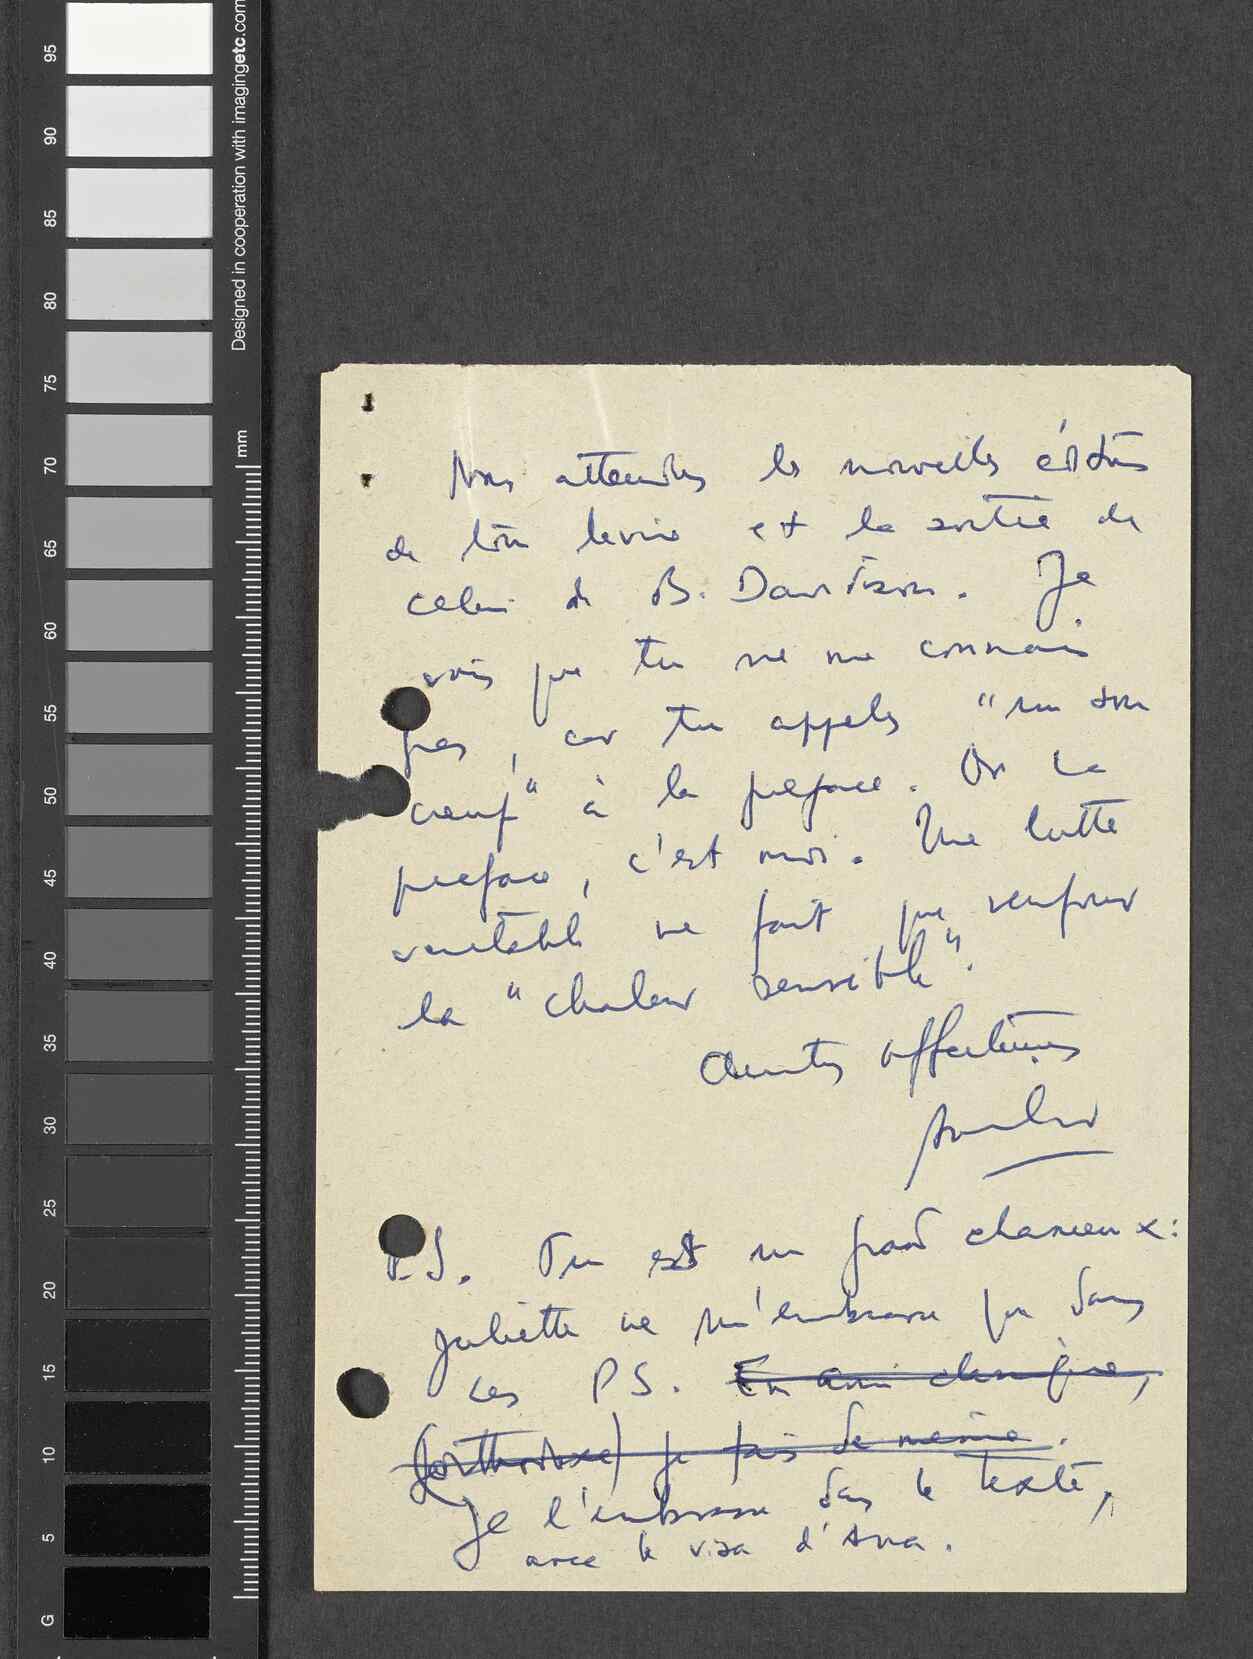 95
90
85
80
75
70
65
60
55
50
45
40
35
30
25
20
15
10
5
G
Designed in cooperation with imagingetc.com
mm
Nous attendons les nouvelles éditions
de ton livre et la sortie de
celui de B. Davidson. Je
vois que tu ne me connais
pas, car tu appelles "un son
creux" à la préface. Or la
préface, c'est moi. Une lutte
véritable ne fait que renforcer
la "chaleur sensible".
Amitiés affectueuses
P.S. Tu est un grand chanceux:
Juliette ne m'embrasse que dans
les P.S. En ami classique,
(orthodoxe) je fais de même.
Je l'embrasse dans le texte,
avec le visa d'Ana.